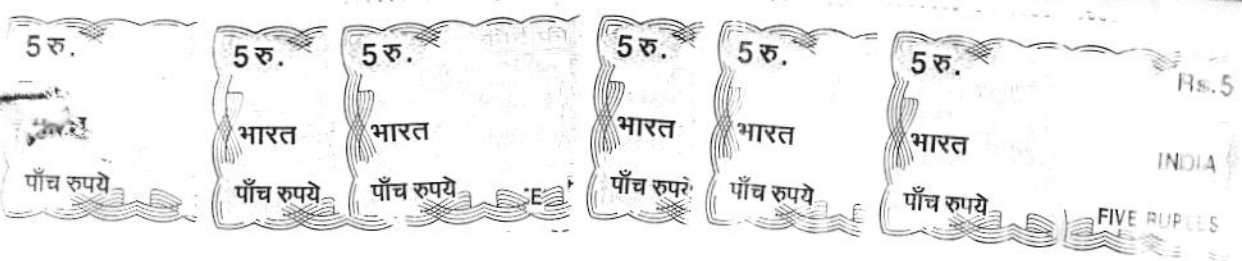 5 रु.
पाँच रुपये
5 रु.
भारत
पाँच रुपये
5 रु.
भारत
पाँच रुपये
5 रु.
भारत
5 रु.
भारत
पाँच रुपये
5 रु.
भारत
पाँच रुपये
Rs.5
INDIA
FIVE RUPEES